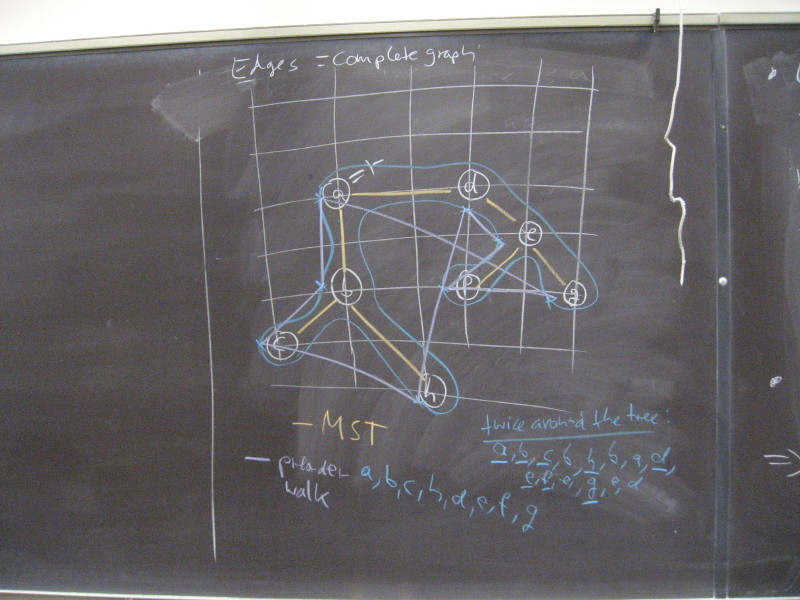 Edges = complete graph
a = r
d
e
b
f
g
c
h
- MST
twice around the tree:
a, b, c, b, h, b, a, d,
e, f, e, g, e, d
- preorder a, b, c, h, d, e, f, g
walk